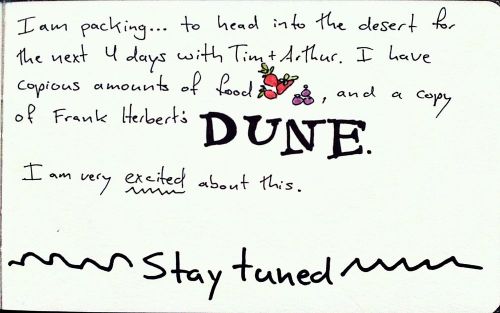 I am packing... to head into the desert for
the next 4 days with Tim + Arthur. I have
copious amounts of food , and a copy
of Frank Herbert's DUNE.
I am very excited about this.
Stay tuned